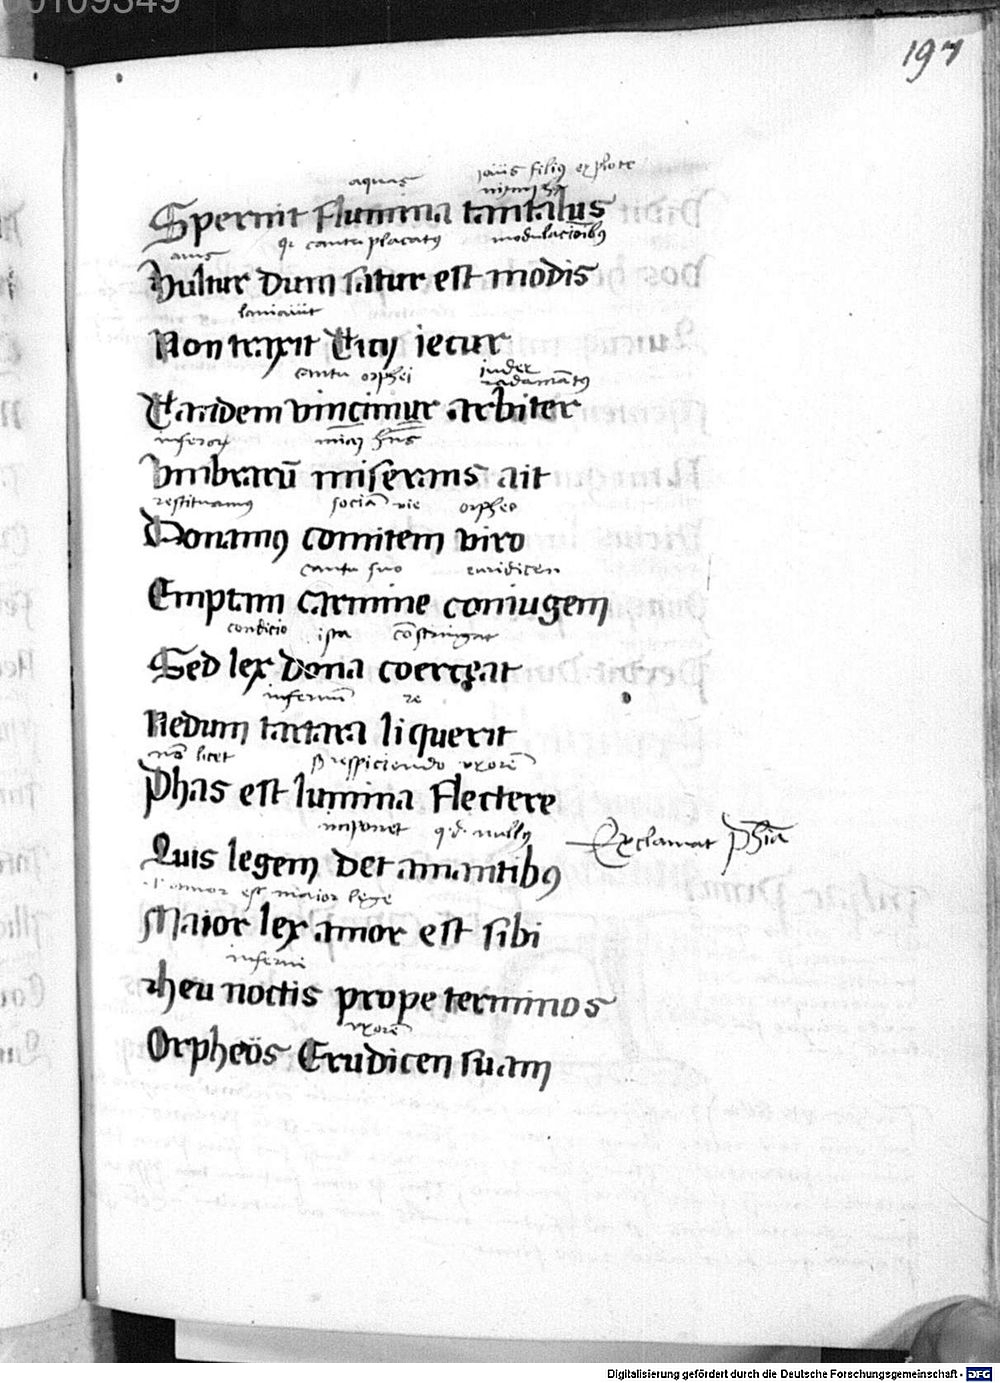 00109349
197
aquas
Spernit flumina tantalus
qr cantu placatus modulacionibus
auis
Vultur dum satur est modis
laniauit
Non traxit Ticij iecur
cantu orphei iudex
radamātus
Tandem vincimur arbiter
inferorum
Vmbrarū miserans ait
restituamus sociā vie orpheo
Donamus comitem viro
cantu suo euridicen
Emptam carmine coniugem
condicio ista cōstringat
Sed lex dona coerceat
infernū re
Nedum tartara liquerit
nō licet respiciendo vxorē
Phas est lumina flectere
imponet q.d. nullus
Exclamat phīa
Quis legem det amantibus
amor est maior lege
Maior lex amor est sibi
inferni
Heu noctis prope terminos
vxorē
Orpheus Erudicen suam
Digitalisierung gefördert durch die Deutsche Forschungsgemeinschaft - DFG